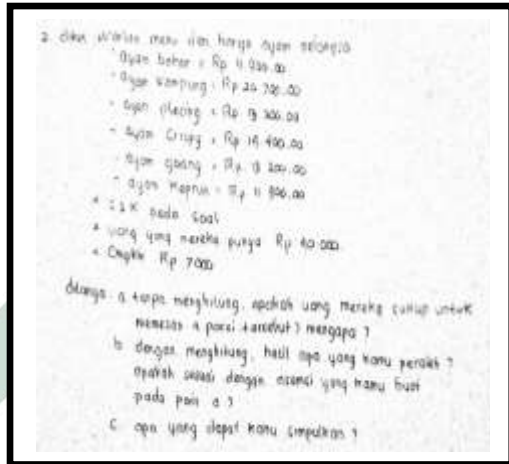 2. dik: Varian menu dan harga ayam selongso
- ayam bakar = Rp 11.
- ayam kampung = Rp 20.
- ayam plecing = Rp 13.200.00
- ayam crispy = Rp 15.400.00
- ayam goang = Rp 13.200.00
- ayam keprus = Rp 11.
pada soal
* uang yang mereka punya Rp 40.000
* ongkir Rp 7000
ditanya: a. tanpa menghitung, apakah uang mereka cukup untuk
memesan 4 porsi tersebut? mengapa?
b. dengan menghitung, hasil apa yang kamu peroleh?
apakah sesuai dengan yang kamu buat
pada poin a?
c. apa yang dapat kamu simpulkan?